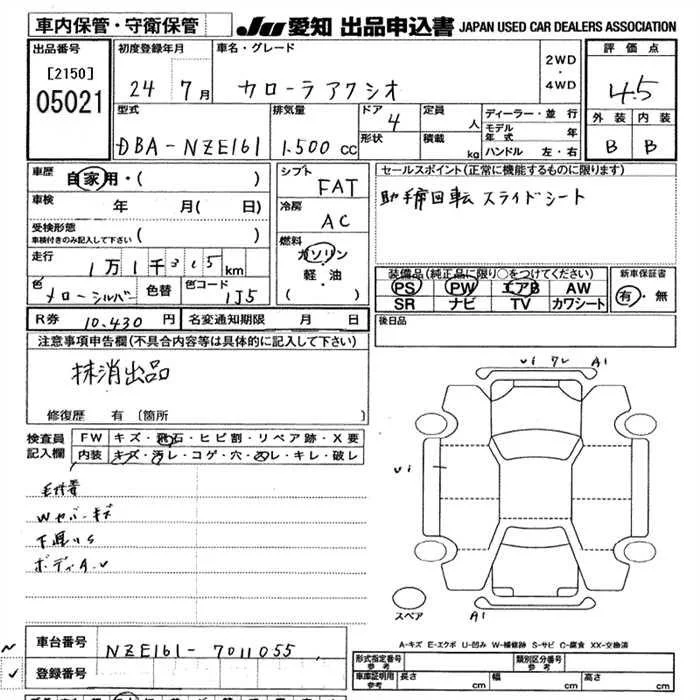 車内保管・守衛保管 JU 愛知 出品申込書 JAPAN USED CAR DEALERS ASSOCIATION
出品番号 初度登録年月 車名・グレード 2WD・4WD 評価点
[2150]
05021 24 7月 カローラアクシオ 4.5
型式 排気量 ドア 定員 人 ディーラー・並行 外装 内装
DBA-NZE161 1.500 cc 4 形状 積載 kg モデル年式 年 B B
ハンドル 左・右
車歴 自家用・( ) シフト FAT セールスポイント(正常に機能するものに限ります)
車検 年 月( 日) 冷房 AC 助手席回転 スライドシート
受検形態
車検付きのみ記入して下さい ( )
走行 1万1千315km 燃料 ガソリン・軽・油 ( ) 装備品(純正品に限り○をつけてください) 新車保証書
色 色替 色コード 1J5 PS PW エアB AW 有・無
SR ナビ TV カワシート
R券 10.430円 名変通知期限 月 日 後日品
注意事項申告欄(不具合内容等は具体的に記入して下さい)
抹消出品
修復歴 有 (箇所
検査員記入欄 FW キズ・飛石・ヒビ割・リペア跡・X要
内装 キズ・汚レ・コゲ・穴・スレ・キレ・破レ
A1
A1
スペア
A-キズ E-エクボ U-凹み W-補修跡 S-サビ C-腐食 XX-交換済
車台番号 NZE161-7011055
登録番号
形式指定番号 参考 類別区分番号 参考
車庫証明用 参考 長さ cm 幅 cm 高さ cm